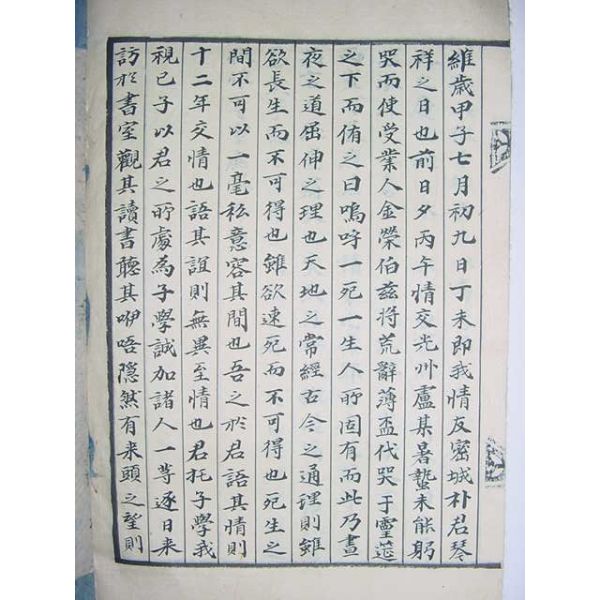 維歲甲子七月初九日丁未即我情友密城朴君琴
祥之日也前日夕丙午情交光州盧某暑蟄未能躬
哭而使受業人金榮伯玆將荒辭薄盃代哭于靈筵
之下而侑之曰嗚呼一死一生人所固有而此乃晝
夜之道屈伸之理也天地之常經古今之通理則雖
欲長生而不可得也雖欲速死而不可得也死生之
間不可以一毫私意容其間也吾之於君語其情則
十二年交情也語其誼則無異至情也君托子學我
視已子以君之所處為子學誠加諸人一等逐日来
訪於書室觀其讀書聽其咿唔隱然有来頭之望則